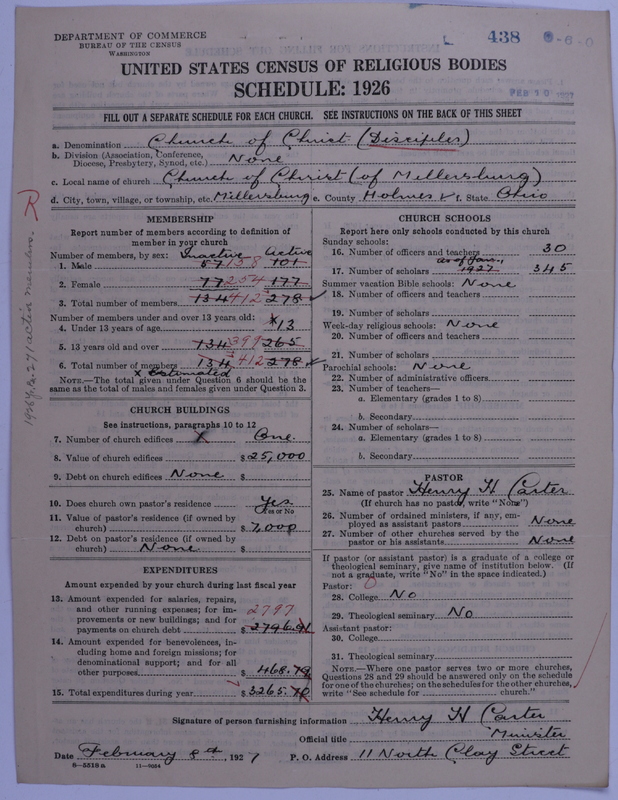 DEPARTMENT OF COMMERCE
BUREAU OF THE CENSUS
WASHINGTON
438
8-6-0
UNITED STATES CENSUS OF RELIGIOUS BODIES
SCHEDULE: 1926
FILL OUT A SEPARATE SCHEDULE FOR EACH CHURCH. SEE INSTRUCTIONS ON THE BACK OF THIS SHEET
a. Denomination Church of Christ (Disciples)
b. Division (Association, Conference, Diocese, Presbytery, Synod, etc.) None
c. Local name of church Church of Christ (of Millersburg)
d. City, town, village, or township, etc. Millersburg e. County Holmes f. State Ohio
R
1926 Yr. Bk. 271 active members.
MEMBERSHIP
Report number of members according to definition of
member in your church
Number of members, by sex: Inactive Active
1. Male 57 158 101
2. Female 77 254 177
3. Total number of members 134 412 278
Number of members under and over 13 years old:
4. Under 13 years of age x 13
5. 13 years old and over 134 399 265
6. Total number of members 134 412 278
x Estimated
NOTE.—The total given under Question 6 should be the
same as the total of males and females given under Question 3.
CHURCH BUILDINGS
See instructions, paragraphs 10 to 12
7. Number of church edifices X One
8. Value of church edifices $ 25,000
9. Debt on church edifices None $
10. Does church own pastor's residence Yes
Yes or No
11. Value of pastor's residence (if owned by
church) $ 7,000
12. Debt on pastor's residence (if owned by
church) None $
EXPENDITURES
Amount expended by your church during last fiscal year
13. Amount expended for salaries, repairs,
and other running expenses; for im-
provements or new buildings; and for
payments on church debt 2797 $ 2796.91
14. Amount expended for benevolences, in-
cluding home and foreign missions; for
denominational support; and for all
other purposes $ 468.79
15. Total expenditures during year $ 3265.70
CHURCH SCHOOLS
Report here only schools conducted by this church
Sunday schools:
16. Number of officers and teachers 30
as of Jan., 1927
17. Number of scholars 345
Summer vacation Bible schools: None
18. Number of officers and teachers
19. Number of scholars
Week-day religious schools: None
20. Number of officers and teachers
21. Number of scholars
Parochial schools: None
22. Number of administrative officers
23. Number of teachers—
a. Elementary (grades 1 to 8)
b. Secondary
24. Number of scholars—
a. Elementary (grades 1 to 8)
b. Secondary
PASTOR
25. Name of pastor Henry H Carter
(If church has no pastor, write "None")
26. Number of ordained ministers, if any, em-
ployed as assistant pastors None
27. Number of other churches served by the
pastor or his assistants None
If pastor (or assistant pastor) is a graduate of a college or
theological seminary, give name of institution below. (If
not a graduate, write "No" in the space indicated.)
Pastor: 0
28. College No
29. Theological seminary No
Assistant pastor:
30. College
31. Theological seminary
NOTE.—Where one pastor serves two or more churches,
Questions 28 and 29 should be answered only on the schedule
for one of the churches; on the schedules for the other churches,
write "See schedule for church."
Signature of person furnishing information Henry H Carter
Official title Minister
Date February 8th, 1927 P. O. Address 11 North Clay Street
8—5518 a 11—9024